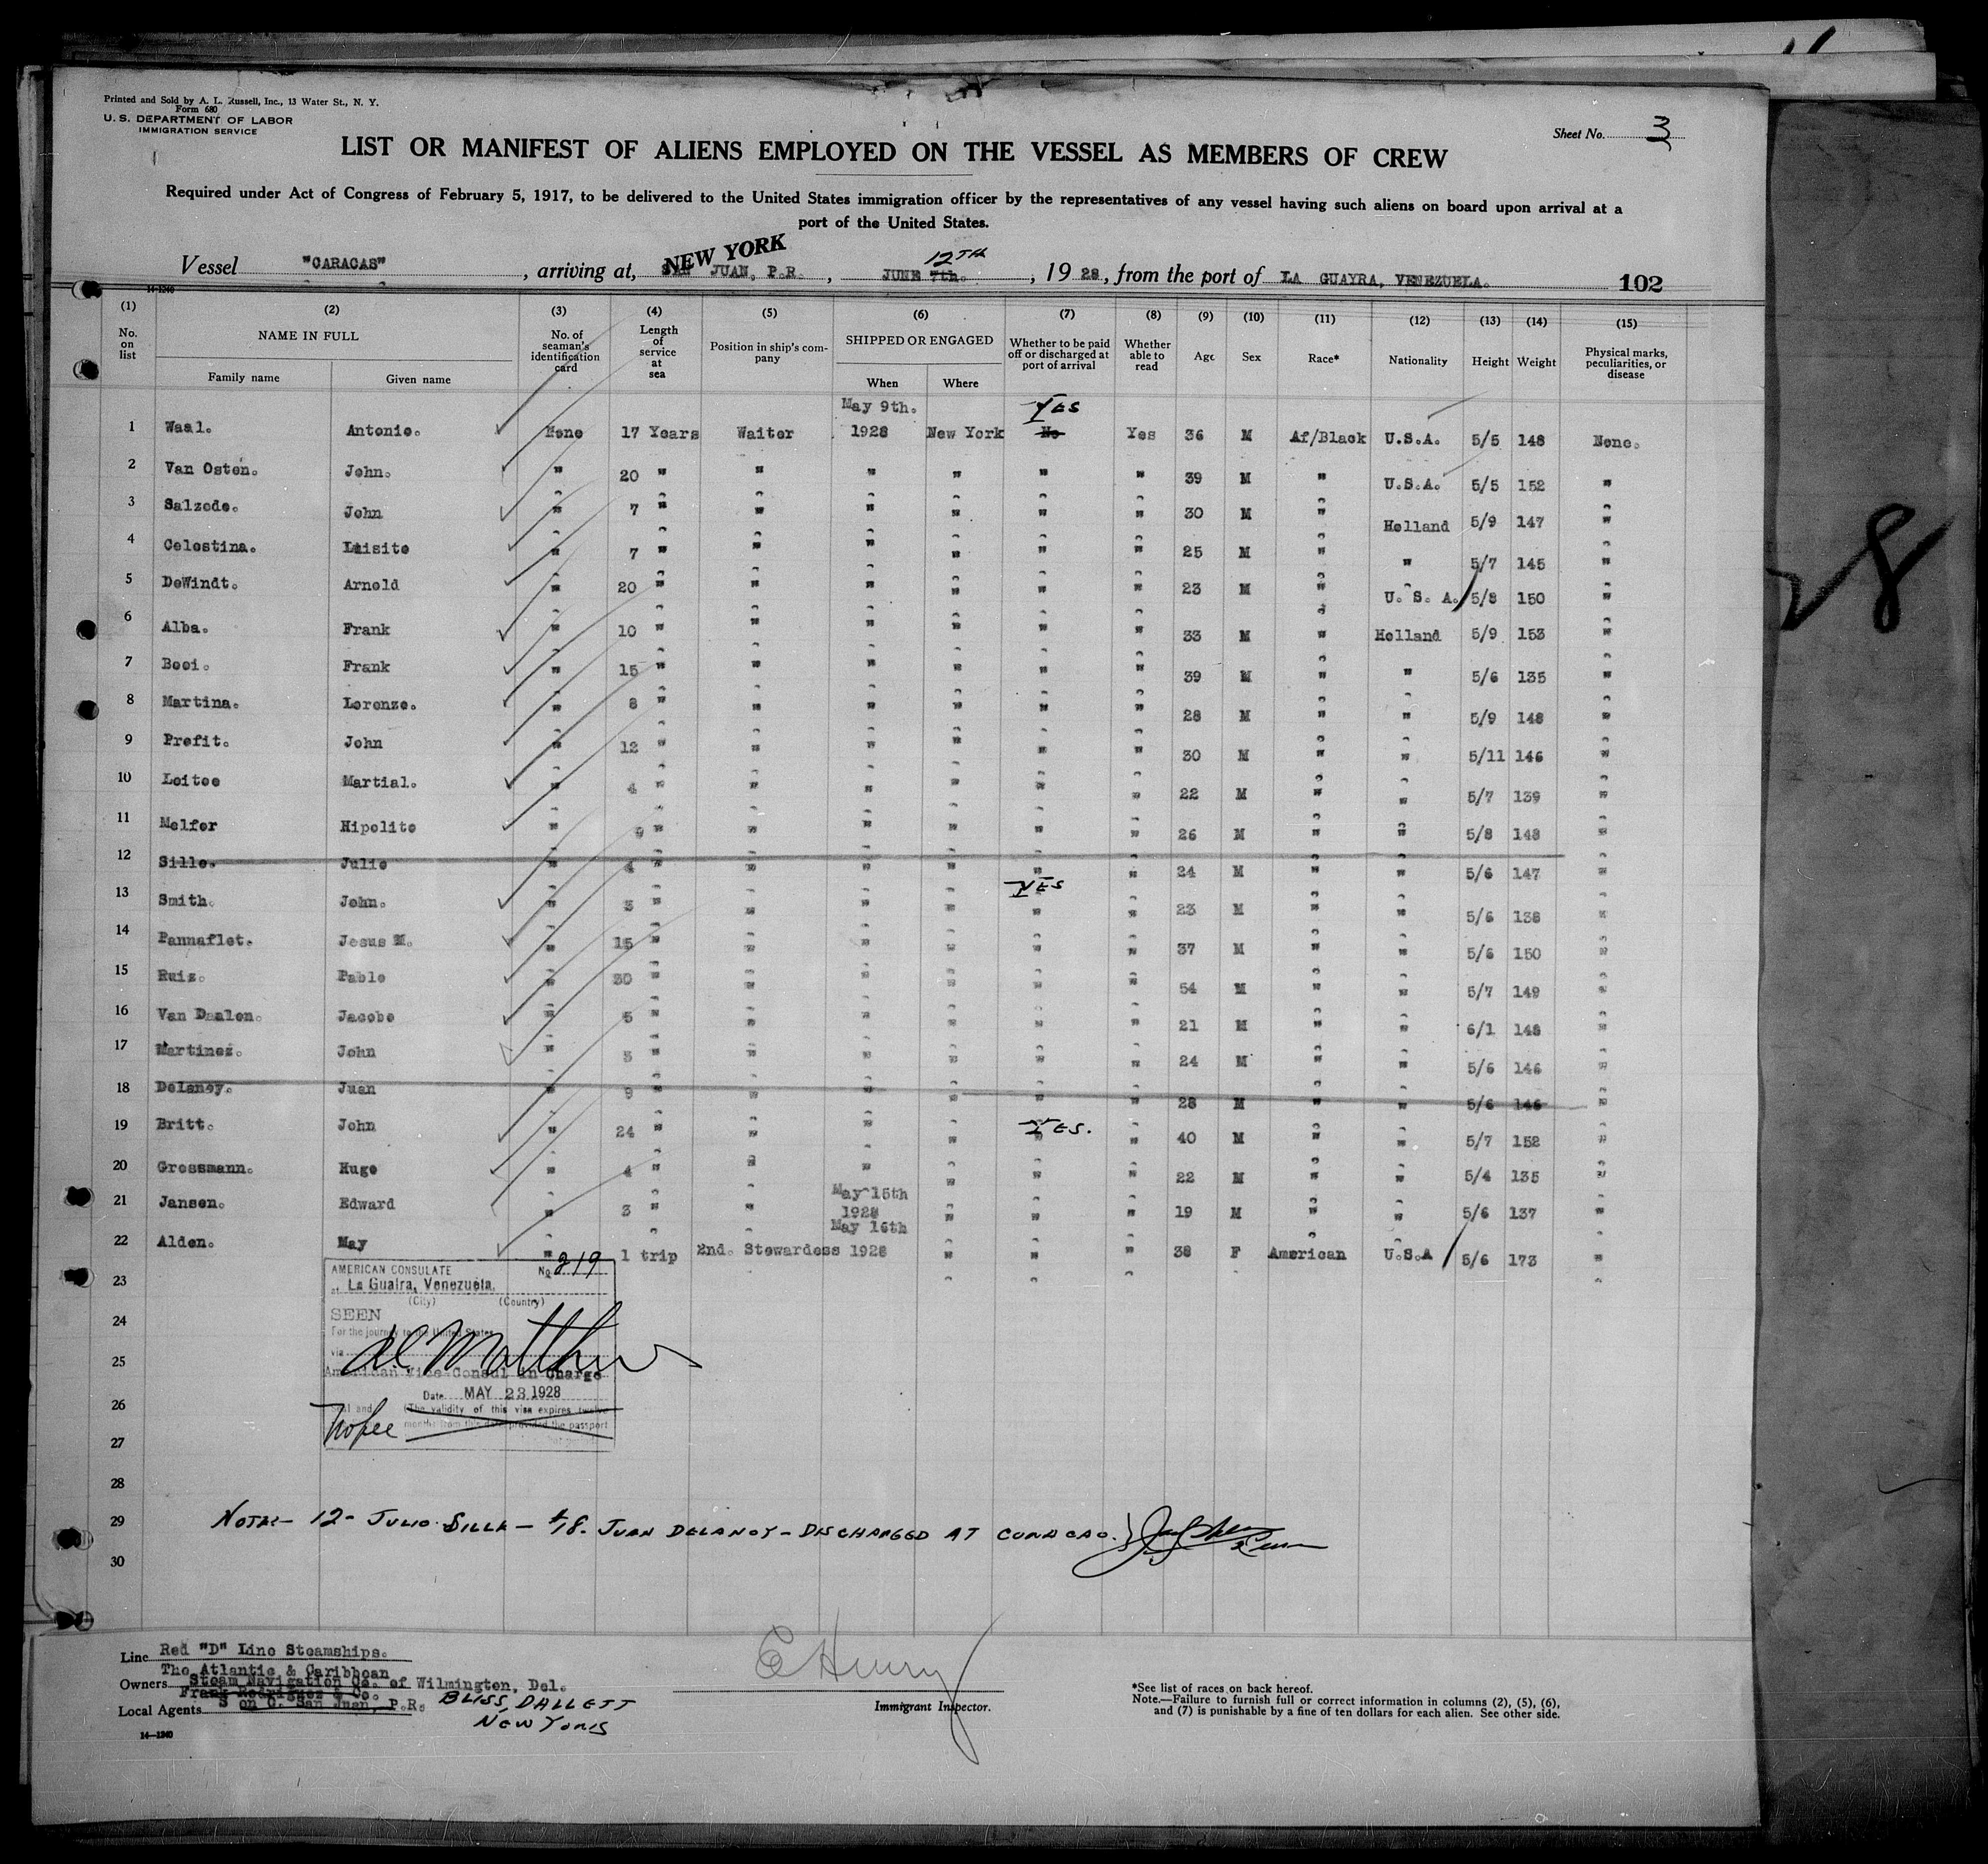 Printed and Sold by A. L. Russell, Inc., 13 Water St., N. Y.
Form 680
U. S. DEPARTMENT OF LABOR
IMMIGRATION SERVICE
Sheet No. 3
LIST OR MANIFEST OF ALIENS EMPLOYED ON THE VESSEL AS MEMBERS OF CREW
Required under Act of Congress of February 5, 1917, to be delivered to the United States immigration officer by the representatives of any vessel having such aliens on board upon arrival at a
port of the United States.
NEW YORK 12TH
Vessel "CARACAS", arriving at, SAN JUAN, P.R., JUNE 7th., 1928, from the port of LA GUAYRA, VENEZUELA. 102
14-1240
(1) (2) (3) (4) (5) (6) (7) (8) (9) (10) (11) (12) (13) (14) (15)
No. on list
NAME IN FULL
Family name
Given name
No. of seaman's identification card
Length of service at sea
Position in ship's company
SHIPPED OR ENGAGED
When
Where
Whether to be paid off or discharged at port of arrival
Whether able to read
Age
Sex
Race*
Nationality
Height
Weight
Physical marks, peculiarities, or disease
May 9th. YES
1 Waal. Antonio. None 17 Years Waiter 1928 New York No Yes 36 M Af/Black U.S.A. 5/5 148 None.
2 Van Osten. John. " 20 " " " " " " 39 M " U.S.A. 5/5 152 "
3 Salzode. John " 7 " " " " " " 30 M " Holland 5/9 147 "
4 Celestina. Luisito " 7 " " " " " " 25 M " " 5/7 145 "
5 DeWindt. Arnold " 20 " " " " " " 23 M " U. S. A. 5/8 150 "
6 Alba. Frank " 10 " " " " " " 33 M " Holland 5/9 153 "
7 Booi. Frank " 15 " " " " " " 39 M " " 5/6 135 "
8 Martina. Lorenzo. " 8 " " " " " " 28 M " " 5/9 148 "
9 Profit. John " 12 " " " " " " 30 M " " 5/11 146 "
10 Loitee Martial. " 4 " " " " " " 22 M " " 5/7 139 "
11 Melfor Hipolito " 9 " " " " " " 26 M " " 5/8 148 "
12 Sille. Julio " 4 " " " " " " 24 M " " 5/6 147 "
YES
13 Smith. John. " 3 " " " " " " 23 M " " 5/6 138 "
14 Pannaflet. Jesus M. " 15 " " " " " " 37 M " " 5/6 150 "
15 Ruiz. Pablo " 30 " " " " " " 54 M " " 5/7 149 "
16 Van Daalen. Jacobo " 5 " " " " " " 21 M " " 6/1 148 "
17 Martinez. John " 3 " " " " " " 24 M " " 5/6 146 "
18 Delanoy. Juan " 9 " " " " " " 28 M " " 5/6 146 "
YES.
19 Britt. John " 24 " " " " " " 40 M " " 5/7 152 "
20 Grossmann. Hugo " 4 " " " " " " 22 M " " 5/4 135 "
May 15th
21 Jansen. Edward " 3 " " 1928 " " " 19 M " " 5/6 137 "
May 16th
22 Alden. May " 1 trip 2nd. Stewardess 1928 " " " 38 F American U.S.A 5/6 173 "
23
24
25
26
27
28
AMERICAN CONSULATE No 219
at La Guaira, Venezuela.
(City) (Country)
SEEN
For the journey to the United States
via
American Vice Consul in Charge
Date MAY 23 1928
(The validity of this visa expires twelve
months from this date provided the passport
No fee
29 NOTE:- 12- JULIO SILLE - & 18- JUAN DELANOY - DISCHARGED AT CURACAO.
30
Line Red "D" Line Steamships.
The Atlantic & Caribbean
Owners Steam Navigation Co. of Wilmington, Del.
Frank Rodriguez & Co.
Local Agents S on C. San Juan, P.R. BLISS, DALLETT
NEW YORK
14-1240
E Henry
Immigrant Inspector.
*See list of races on back hereof.
Note.—Failure to furnish full or correct information in columns (2), (5), (6),
and (7) is punishable by a fine of ten dollars for each alien. See other side.
8